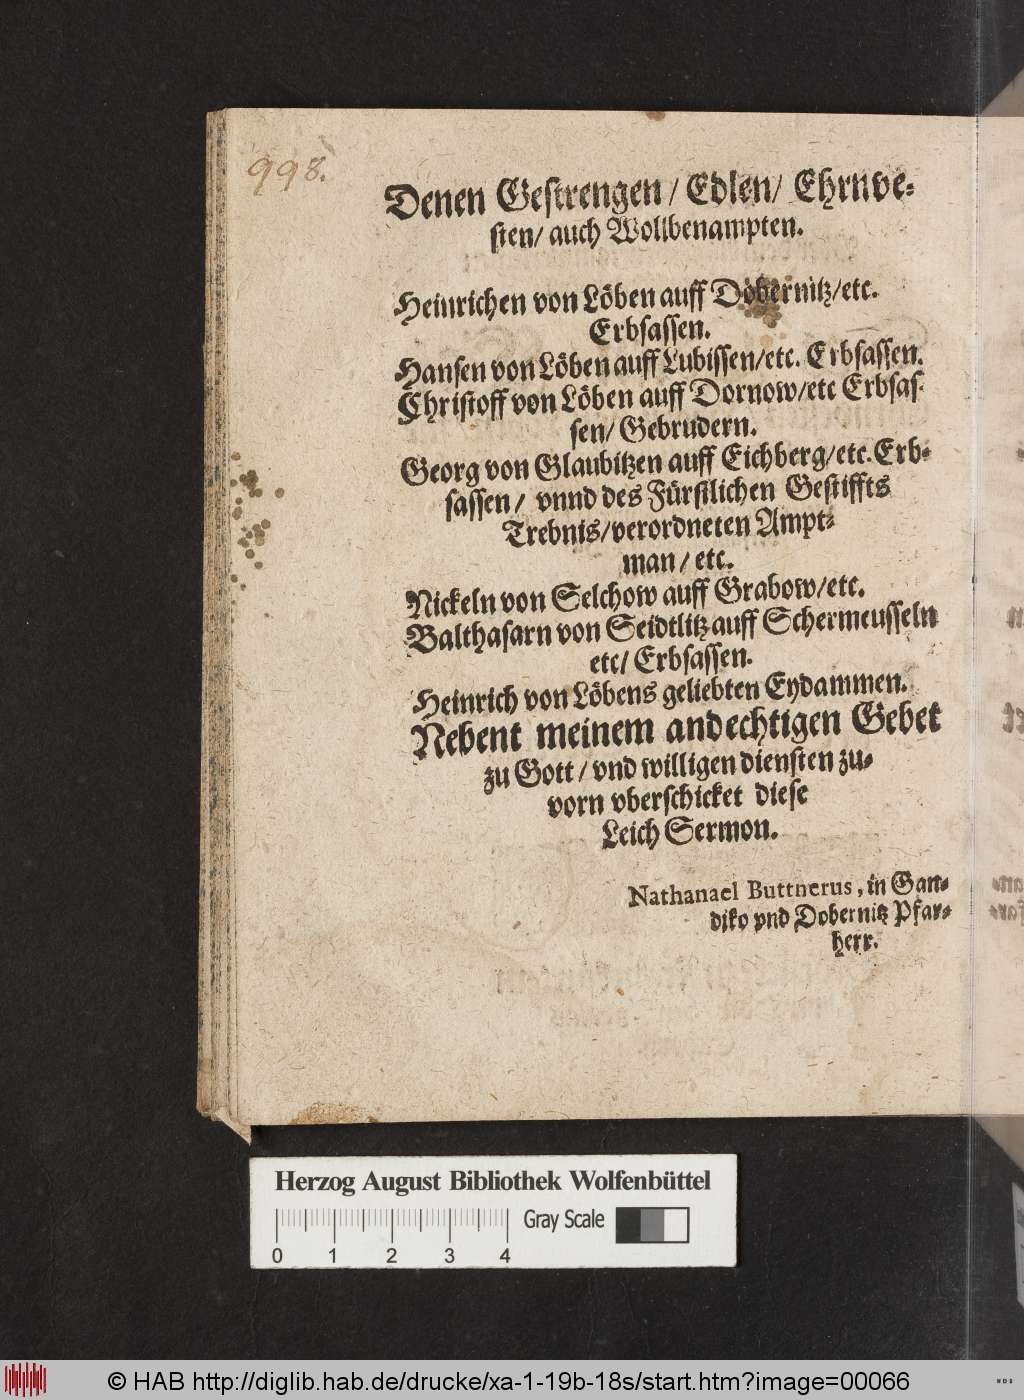 998.
Denen Gestrengen / Edlen / Ehrnve-
sten / auch Wollbenampten.
Heinrichen von Löben auff Döbernitz / etc.
Erbsassen.
Hansen von Löben auff Lubissen / etc. Erbsassen.
Christoff von Löben auff Dornow / etc Erbsas-
sen / Gebrudern.
Georg von Glaubitzen auff Eichberg / etc. Erb-
sassen / vnnd des Fürstlichen Gestiffts
Trebnis / verordneten Ampt-
man / etc.
Nickeln von Selchow auff Grabow / etc.
Balthasarn von Seidtlitz auff Schermeusseln
etc / Erbsassen.
Heinrich von Löbens geliebten Eydammen.
Nebent meinem andechtigen Gebet
zu Gott / vnd willigen diensten zu-
vorn vberschicket diese
Leich Sermon.
Nathanael Buttnerus, in Gan-
diko vnd Dobernitz Pfar-
herr.
Herzog August Bibliothek Wolfenbüttel
Gray Scale
0 1 2 3 4
© HAB http://diglib.hab.de/drucke/xa-1-19b-18s/start.htm?image=00066